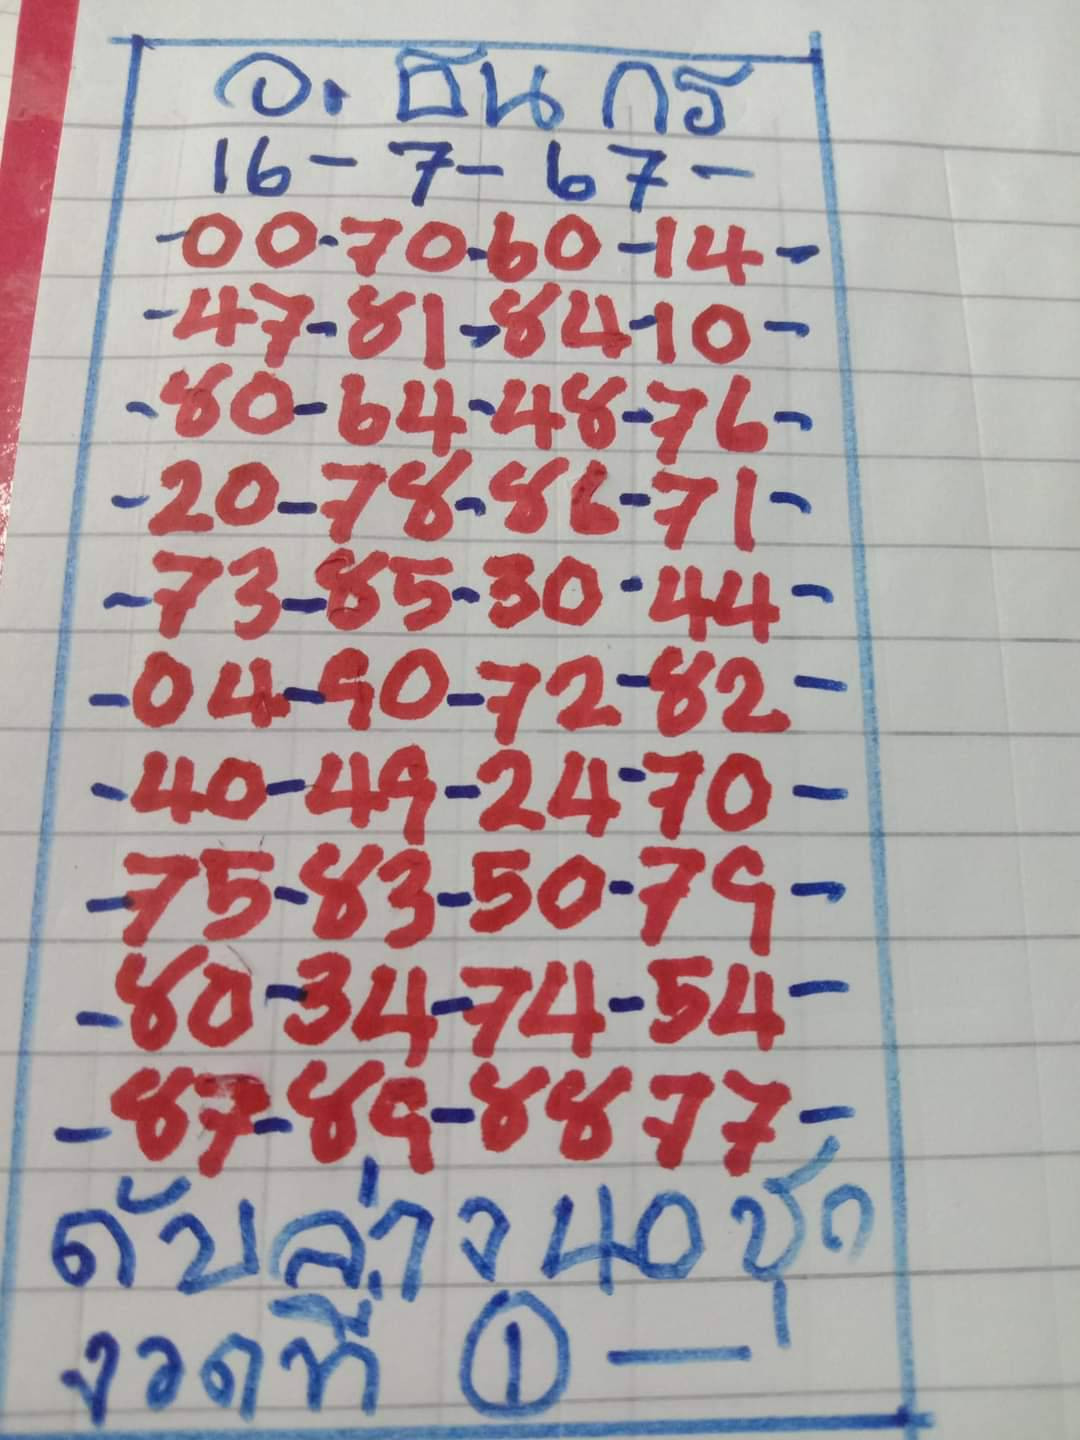 อ. ธนกร
16-7-67-
-00-70-60-14-
-47-81-84-10-
-80-64-48-76-
-20-78-86-71-
-73-85-30-44-
-04-90-72-82-
-40-49-24-70-
-75-83-50-79-
-80-34-74-54-
-87-89-8877-
ดับล่าง 40 ชุด
งวดที่ ① —